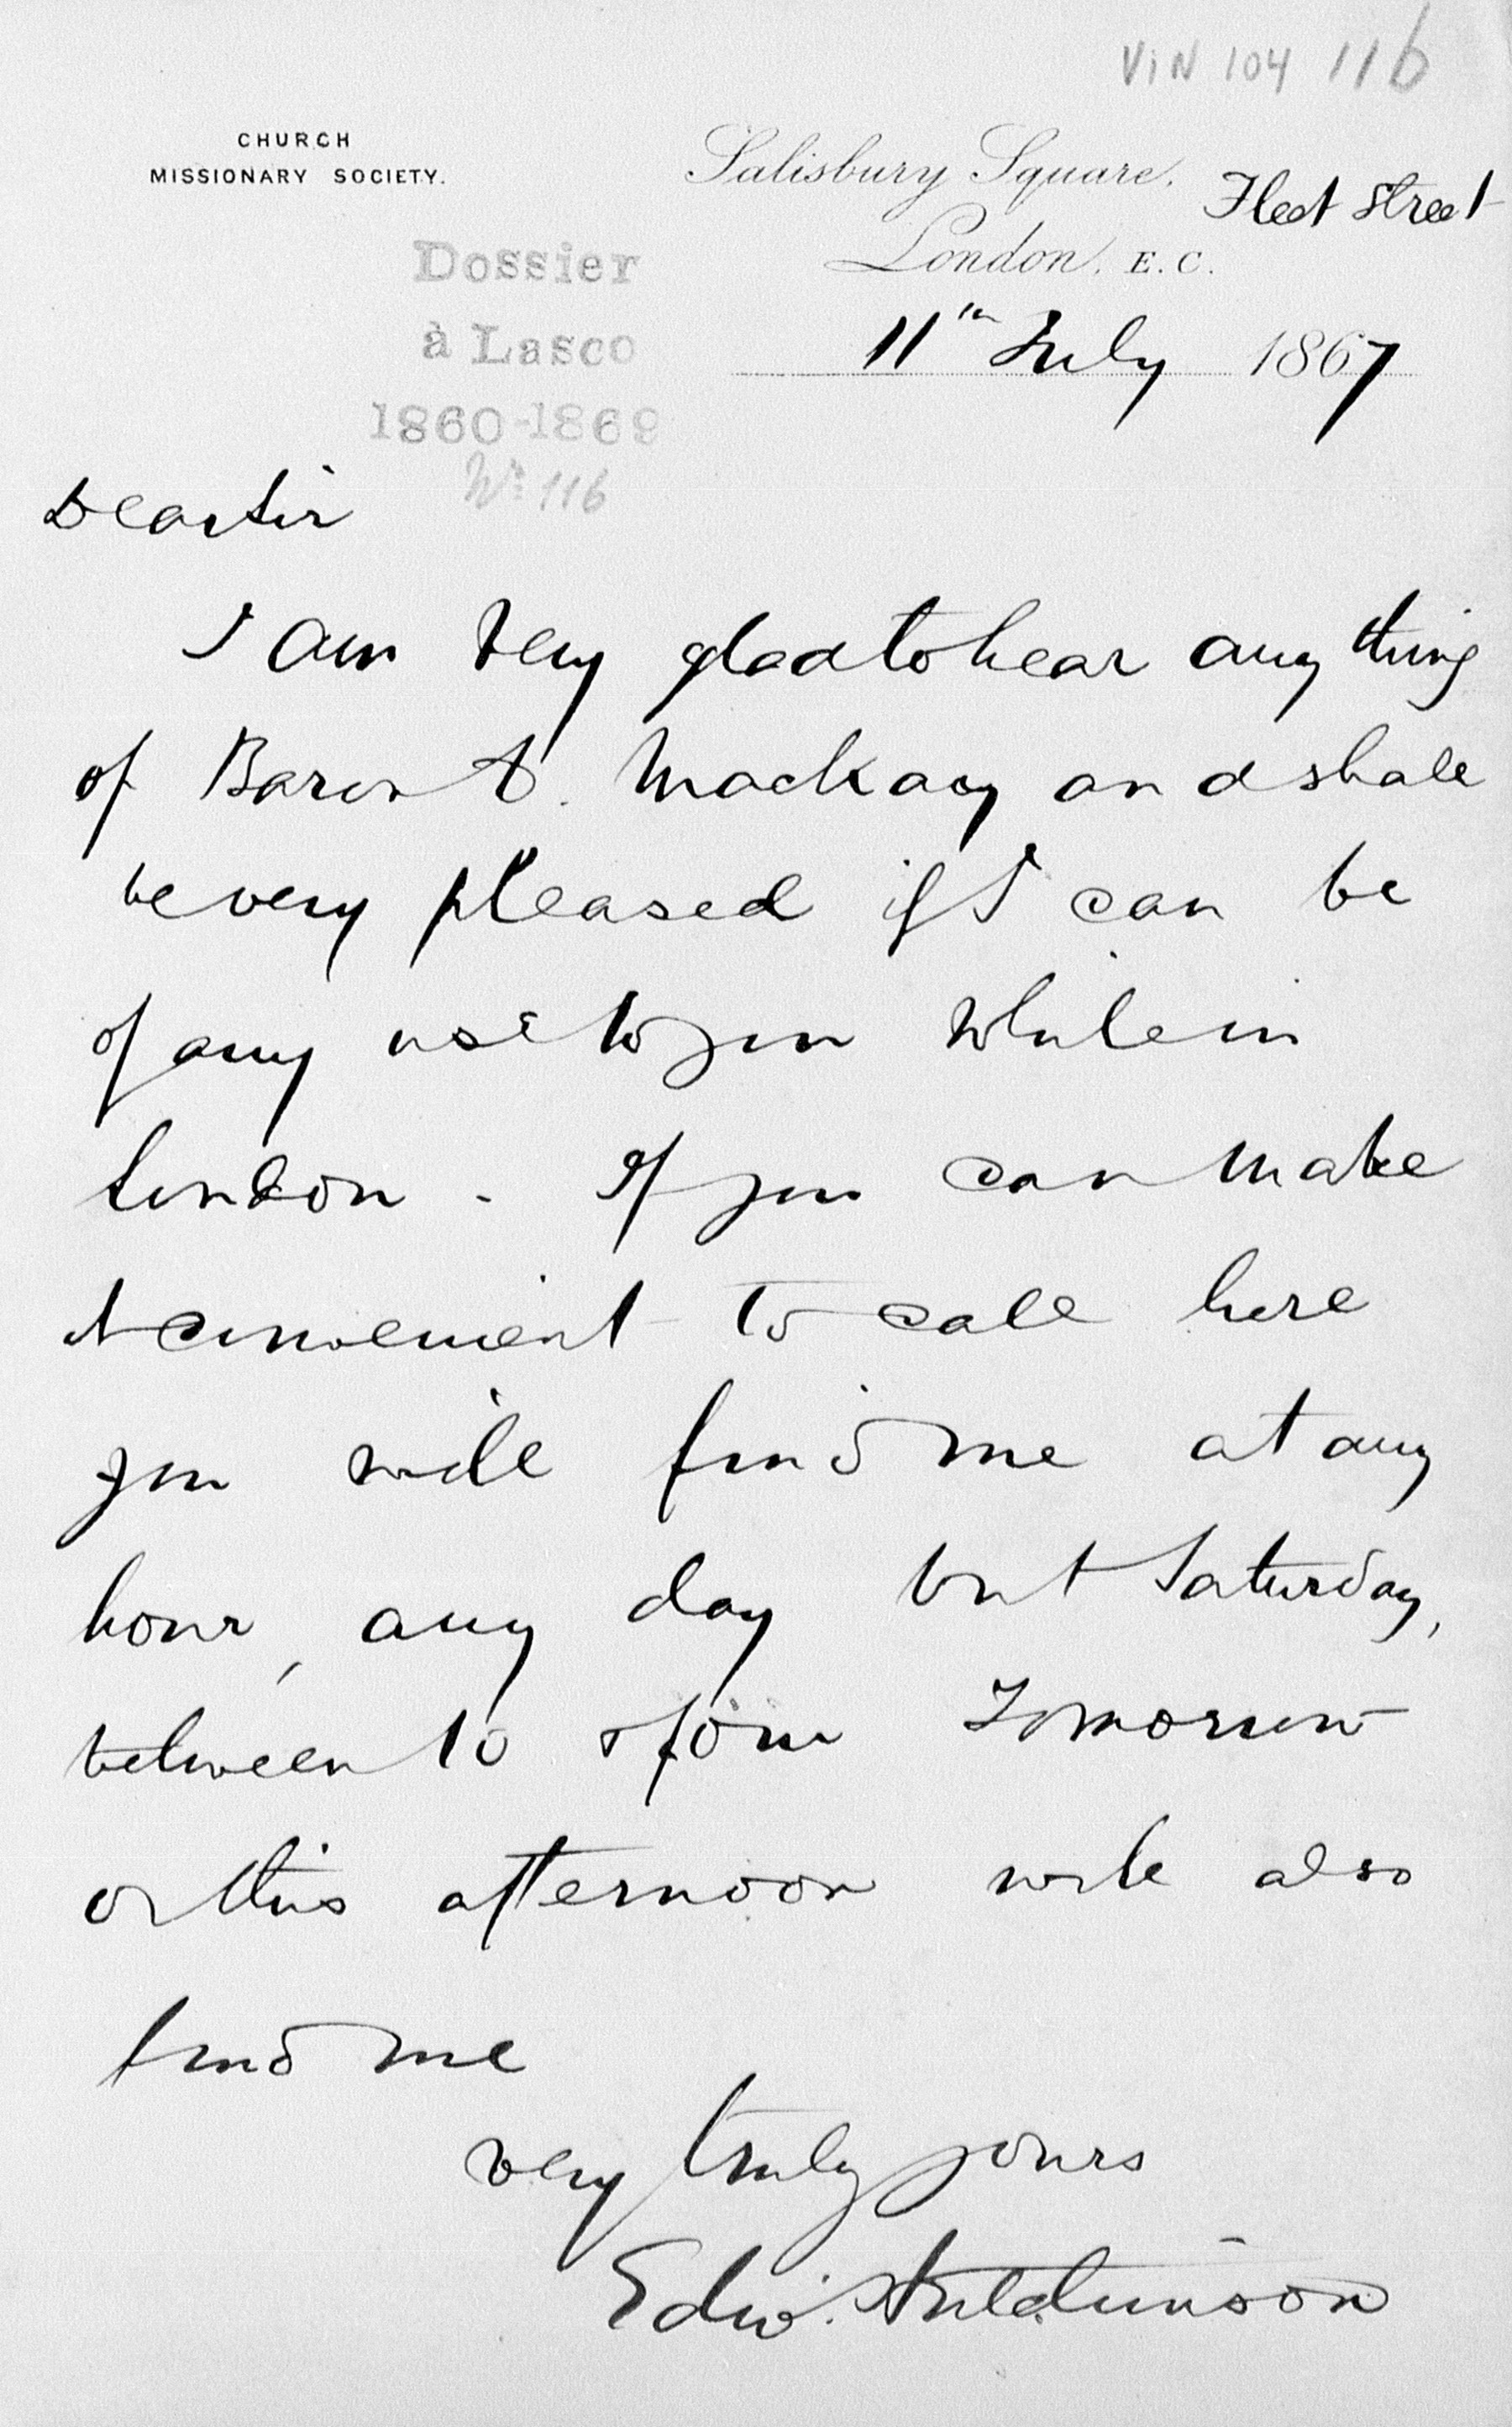 VIN 104 116
CHURCH
MISSIONARY SOCIETY.
Salisbury Square, Fleet Street
London, E.C.
11th July 1867
Dossier
à Lasco
1860-1869
No 116
Dear Sir
I am very glad to hear any thing
of Baron Mackay and shall
be very pleased if I can be
of any use to you while in
London. If you can make
it convenient to call here
you will find me at any
hour, any day but Saturday,
between 10 & four Tomorrow
or this afternoon will also
find me
very truly yours
Edw. Hutchinson